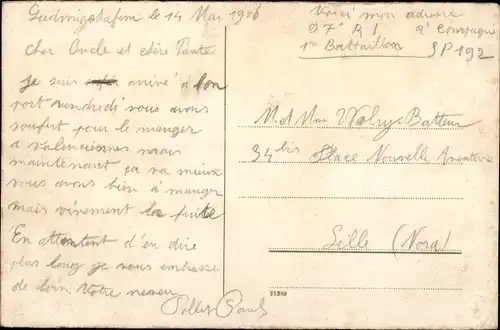 Ludwigshafem le 14 Mai 1926
Cher Oncle et chère Tante
Je suis arrivé à bon
port vendredi vous avons
soufert pour le manger
a Valenciennes mais
maintenant ça va mieux
vous avons bien à manger
mais vivement la fuite
En attentent d'en dire
plus long je vous embrasse
de loin. Votre neveu
Pollet Paul
Voici mon adresse
97e R I 2e Compagnie
1re Bataillon SP 192
M et Mme Walry-Batteur
34 bis Place Nouvelle Aventure
Lille (Nord)